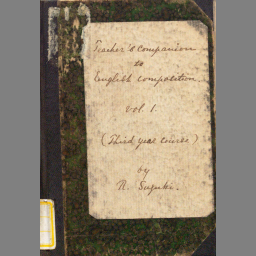 Teacher's Companion
to
English composition.
Vol. 1.
(Third year course)
by
N. Suzuki.